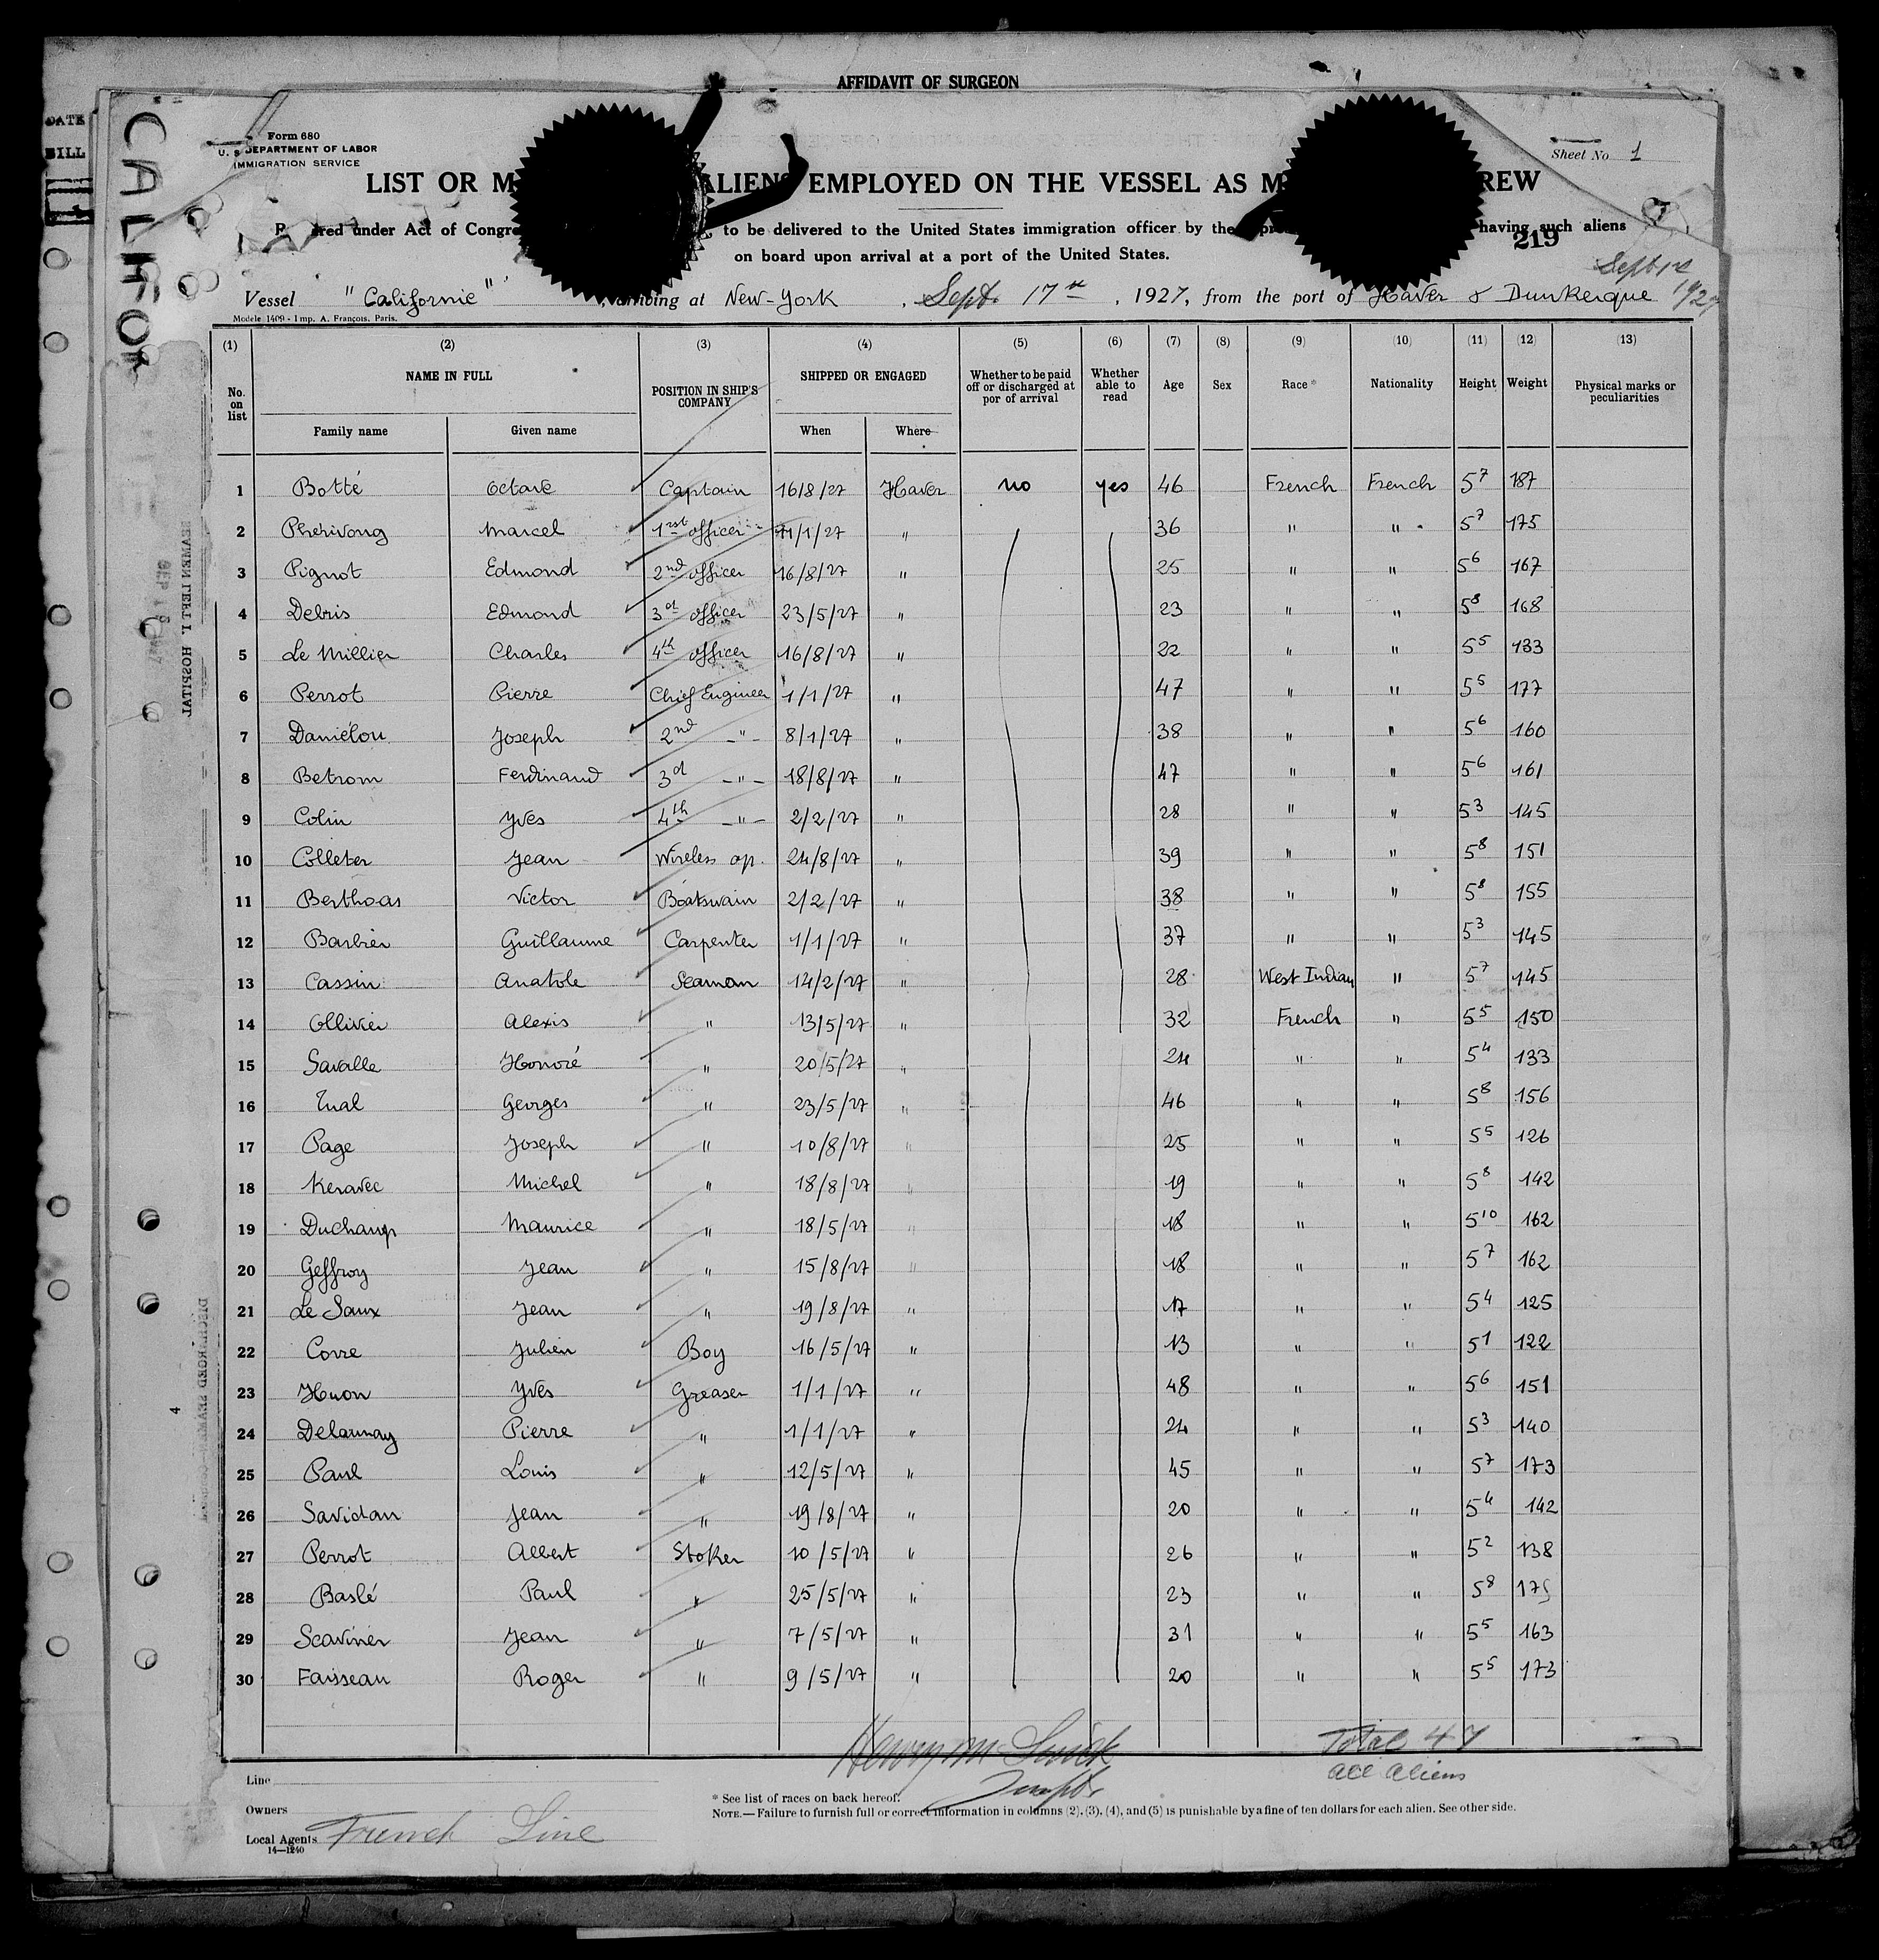 AFFIDAVIT OF SURGEON
DATE
BILL
CALIFOR
Form 680
U. S. DEPARTMENT OF LABOR
IMMIGRATION SERVICE
Sheet No 1
LIST OR M ALIENS EMPLOYED ON THE VESSEL AS M REW
red under Act of Congre to be delivered to the United States immigration officer by the having such aliens
219
on board upon arrival at a port of the United States.
Vessel "Californie" , arriving at New-York , Sept. 17th , 1927, from the port of Haver & Dunkerque
Modele 1409 - Imp. A. François. Paris.
(1) (2) (3) (4) (5) (6) (7) (8) (9) (10) (11) (12) (13)
No. on list NAME IN FULL POSITION IN SHIP'S COMPANY SHIPPED OR ENGAGED Whether to be paid off or discharged at por of arrival Whether able to read Age Sex Race* Nationality Height Weight Physical marks or peculiarities
Family name Given name When Where
1 Botté Octave Captain 16/8/27 Haver no yes 46 French French 5 7 187
2 Marcel 1rst officer 1/1/27 " 36 " " 5 7 175
3 Pignot Edmond 2nd officer 16/8/27 " 25 " " 5 6 167
4 Debris Edmond 3d officer 23/5/27 " 23 " " 5 8 168
5 Le Millier Charles 4th officer 16/8/27 " 22 " " 5 5 133
6 Perrot Pierre Chief Engineer 1/1/27 " 47 " " 5 5 177
7 Daniélou Joseph 2nd -"- 8/1/27 " 38 " " 5 6 160
8 Betrom Ferdinand 3d -"- 18/8/27 " 47 " " 5 6 161
9 Colin Yves 4th -"- 2/2/27 " 28 " " 5 3 145
10 Colleter Jean Wireless op. 24/8/27 " 39 " " 5 8 151
11 Berthoas Victor Boatswain 2/2/27 " 38 " " 5 8 155
12 Barbier Guillaume Carpenter 1/1/27 " 37 " " 5 3 145
13 Cassin Anatole Seaman 14/2/27 " 28 West Indian " 5 7 145
14 Ollivier Alexis " 13/5/27 " 32 French " 5 5 150
15 Savalle Honoré " 20/5/27 " 24 " " 5 4 133
16 Tual Georges " 23/5/27 " 46 " " 5 8 156
17 Page Joseph " 10/8/27 " 25 " " 5 5 126
18 Keravec Michel " 18/8/27 " 19 " " 5 8 142
19 Duchamp Maurice " 18/5/27 " 18 " " 5 10 162
20 Geffroy Jean " 15/8/27 " 18 " " 5 7 162
21 Le Saux Jean " 19/8/27 " 17 " " 5 4 125
22 Corre Julien Boy 16/5/27 " 13 " " 5 1 122
23 Huon Yves Greaser 1/1/27 " 48 " " 5 6 151
24 Delaunay Pierre " 1/1/27 " 24 " " 5 3 140
25 Paul Louis " 12/5/27 " 45 " " 5 7 173
26 Savidan Jean " 19/8/27 " 20 " " 5 4 142
27 Perrot Albert Stoker 10/5/27 " 26 " " 5 2 138
28 Baslé Paul " 25/5/27 " 23 " " 5 8 175
29 Scaviner Jean " 7/5/27 " 31 " " 5 5 163
30 Faisseau Roger " 9/5/27 " 20 " " 5 5 173
Total 47
all aliens
Line
Owners
Local Agents French Line
14—1240
* See list of races on back hereof.
NOTE.—Failure to furnish full or correct information in columns (2), (3), (4), and (5) is punishable by a fine of ten dollars for each alien. See other side.